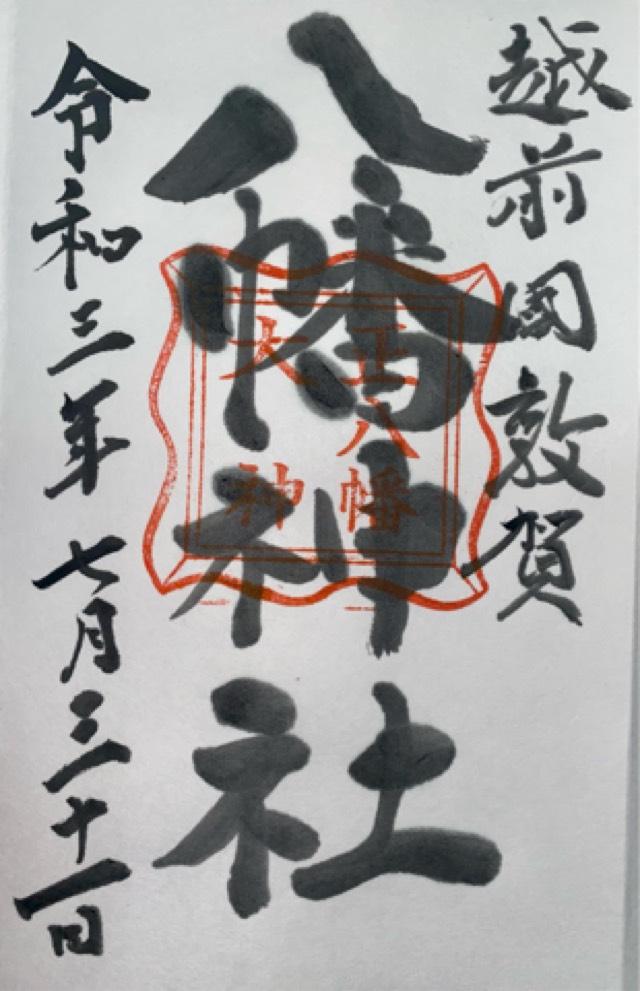 越前國敦賀
八幡神社
正八幡
大神
令和三年 七月三十一日